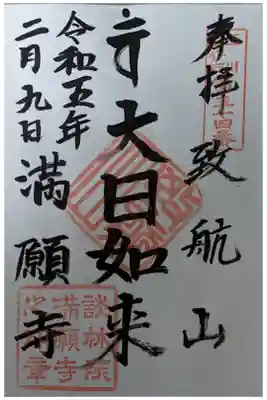 奉拝致航山
大日如来
満願寺
令和五年
二月九日
談林
満願寺